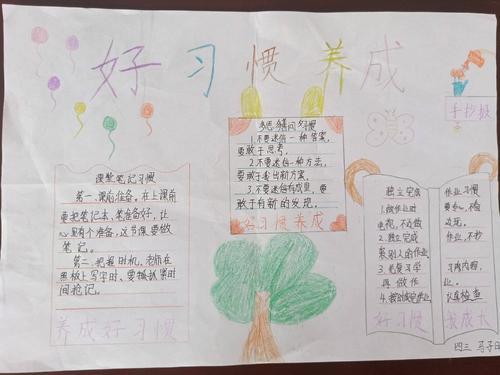 好习惯养成
手抄报
课堂笔记习惯
第一、课前准备。在上课前
要把笔记夹、笔准备好,让
心里有个准备,这节课要做
笔记。
第二、把握时机、老师在
黑板上写字时、要抓紧时
间抢记。
养成好习惯
多思善问习惯
1.不要迷信一种答案,
要敢于思考。
2.不要迷信一种方法,
要敢于走出新方案。
3.不要迷信有成见,要
敢于有新的发现。
好习惯养成
独立完成
1.做作业时
电视,不边做
2.独立完成
袭别人的作业
3.先复习学
再做作
4.按时做完作业
好习惯
作业习惯
要专心,不看
边玩。
作业,不抄
习内内容,
业。
认真检查
我成大
四三 马子